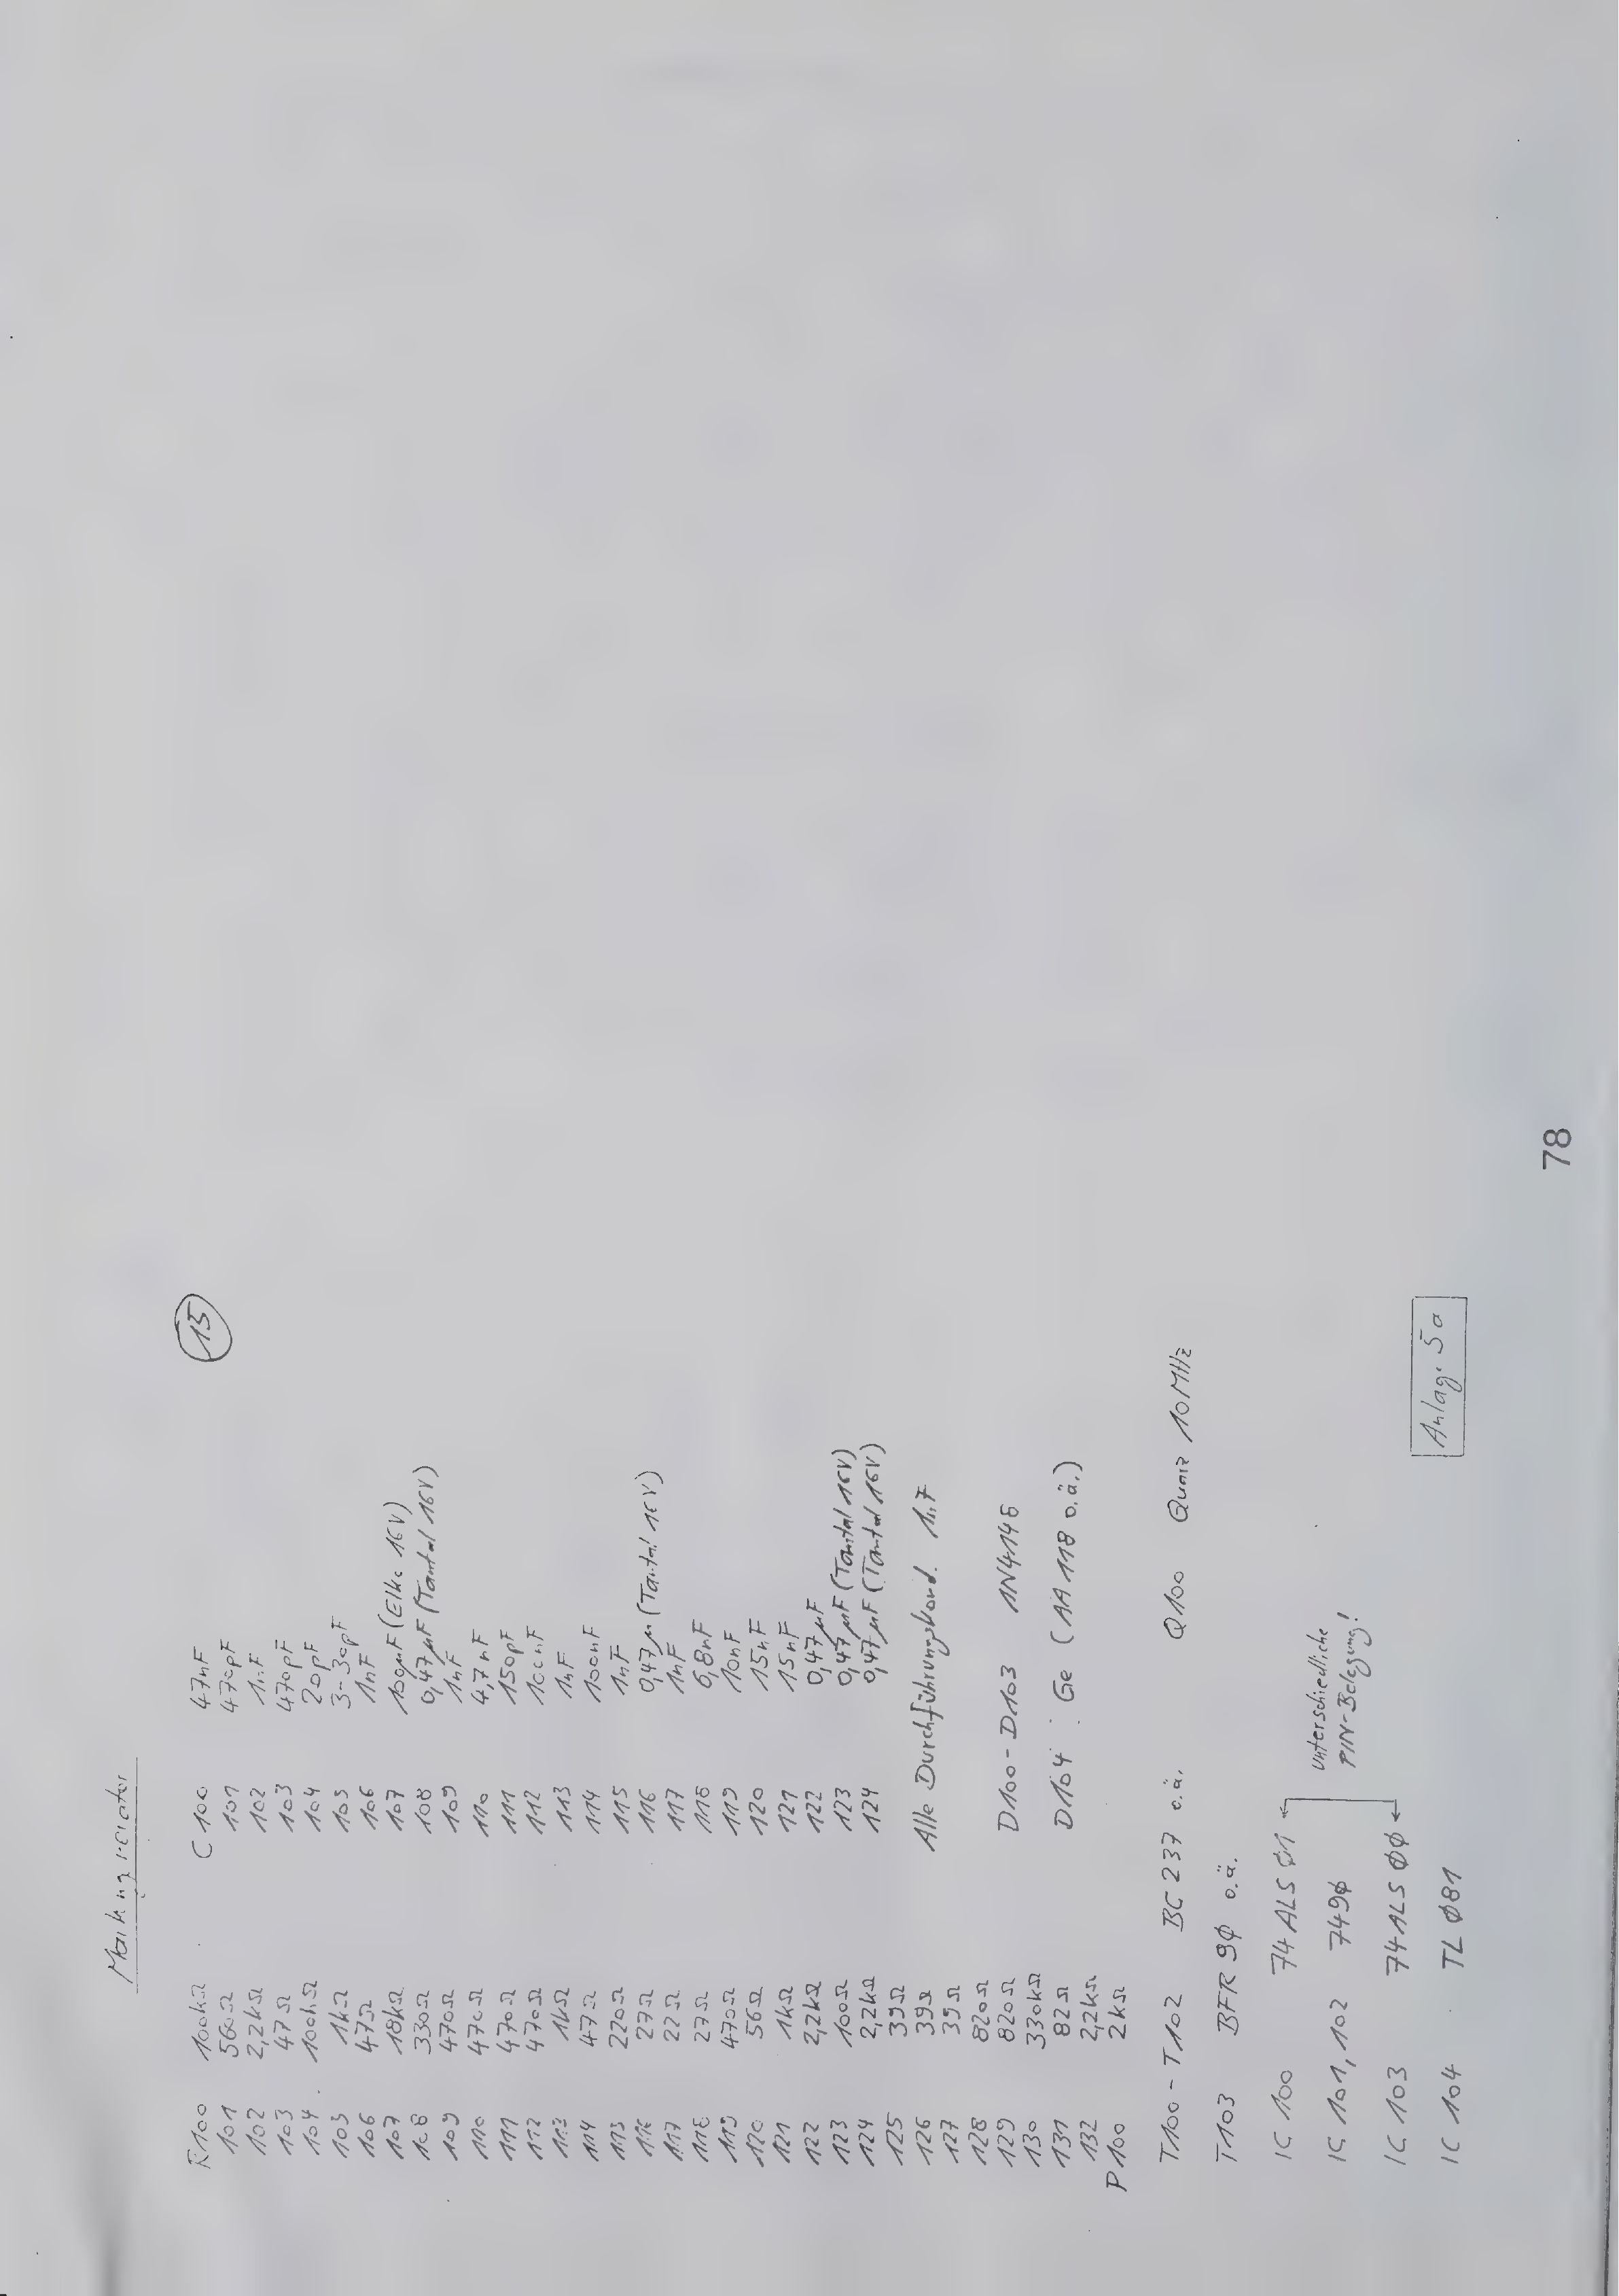 Markengenerator
15
R100 100kΩ C 100 47nF
101 560Ω 101 470pF
102 2,2kΩ 102 1nF
103 47Ω 103 470pF
104 100kΩ 104 20pF
105 1kΩ 105 3-30pF
106 47Ω 106 1nF
107 18kΩ 107 100µF (Elko 16V)
108 330Ω 108 0,47µF (Tantal 16V)
109 470Ω 109 1nF
110 470Ω 110 4,7nF
111 470Ω 111 150pF
112 470Ω 112 100nF
113 1kΩ 113 1nF
114 47Ω 114 100nF
115 220Ω 115 1nF
116 27Ω 116 0,47µ (Tantal 16V)
117 22Ω 117 1nF
118 27Ω 118 6,8nF
119 470Ω 119 10nF
120 56Ω 120 15nF
121 1kΩ 121 15nF
122 2,2kΩ 122 0,47µF
123 100Ω 123 0,47µF (Tantal 16V)
124 2,2kΩ 124 0,47µF (Tantal 16V)
125 39Ω
126 39Ω Alle Durchführungskond. 1nF
127 39Ω
128 820Ω
129 820Ω D100-D103 1N4148
130 330kΩ
131 82Ω D104 : Ge (AA 118 o.ä.)
132 2,2kΩ
P100 2kΩ
T100-T102 BC 237 o.ä. Q100 Quarz 10MHz
T103 BFR 9Ø o.ä.
IC 100 74 ALS Ø1
unterschiedliche
IC 101, 102 749Ø PIN-Belegung!
IC 103 74ALS ØØ
IC 104 TL Ø81
Anlage 5a
78